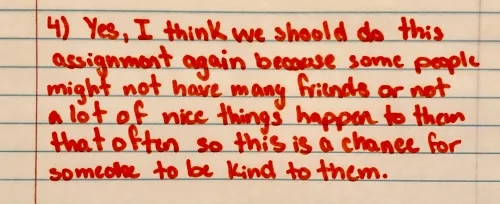 4) Yes, I think we should do this
assignment again because some people
might not have many friends or not
a lot of nice things happen to them
that often so this is a chance for
someone to be kind to them.